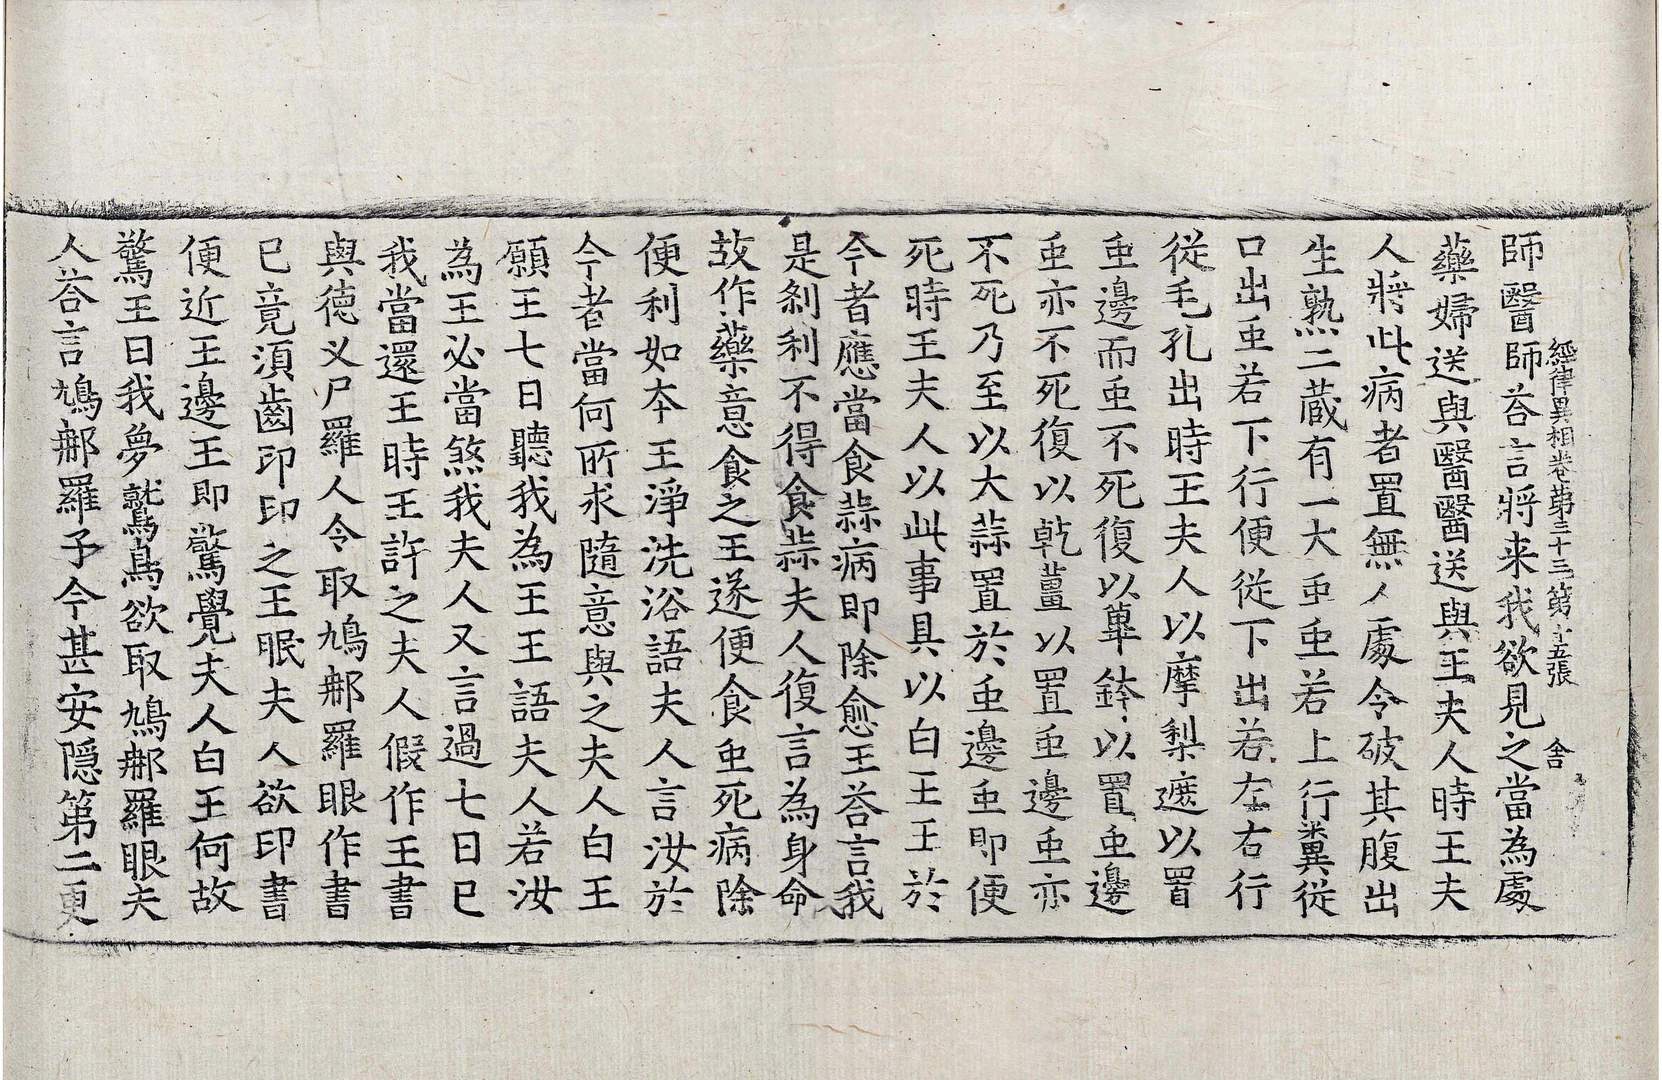 經律異相卷第三十三 第十五張 舍
師醫師荅言將来我欲見之當為處
藥婦送與醫醫送與王夫人時王夫
人將此病者置無人處令破其腹出
生熟二藏有一大䖝䖝若上行糞從
口出䖝若下行便從下出若左右行
從毛孔出時王夫人以摩梨遮以置
䖝邊而䖝不死復以蓽鉢以置䖝邊
䖝亦不死復以乾薑以置䖝邊䖝亦
不死乃至以大蒜置於䖝邊䖝即便
死時王夫人以此事具以白王王於
今者應當食蒜病即除愈王荅言我
是刹利不得食蒜夫人復言為身命
故作藥意食之王遂便食䖝死病除
便利如夲王淨洗浴語夫人言汝於
今者當何所求隨意與之夫人白王
願王七日聽我為王王語夫人若汝
為王必當煞我夫人又言過七日已
我當還王時王許之夫人假作王書
與德乂尸羅人令取鳩𨚗羅眼作書
已竟湏齒印印之王眠夫人欲印書
便近王邊王即驚覺夫人白王何故
驚王曰我夢鷲鳥欲取鳩𨚗羅眼夫
人荅言鳩𨚗羅子今甚安隱第二更